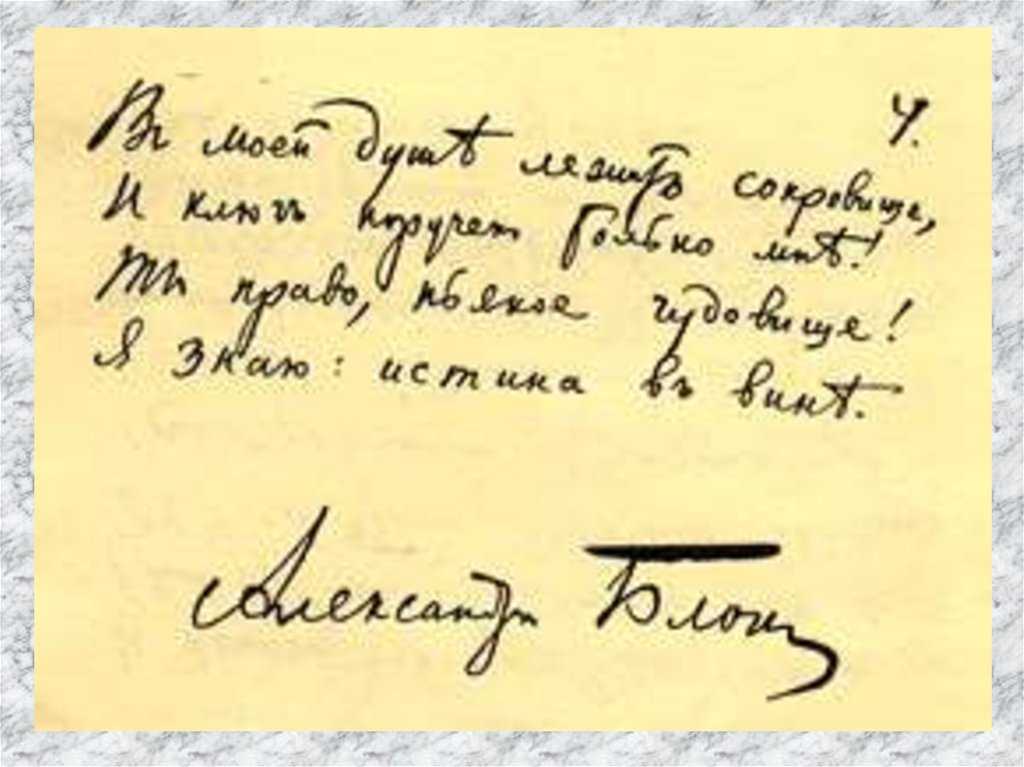 4.
Въ моей душѣ лежитъ сокровище,
И ключъ порученъ только мнѣ!
Ты право, пьяное чудовище!
Я знаю: истина въ винѣ.
Александръ Блокъ